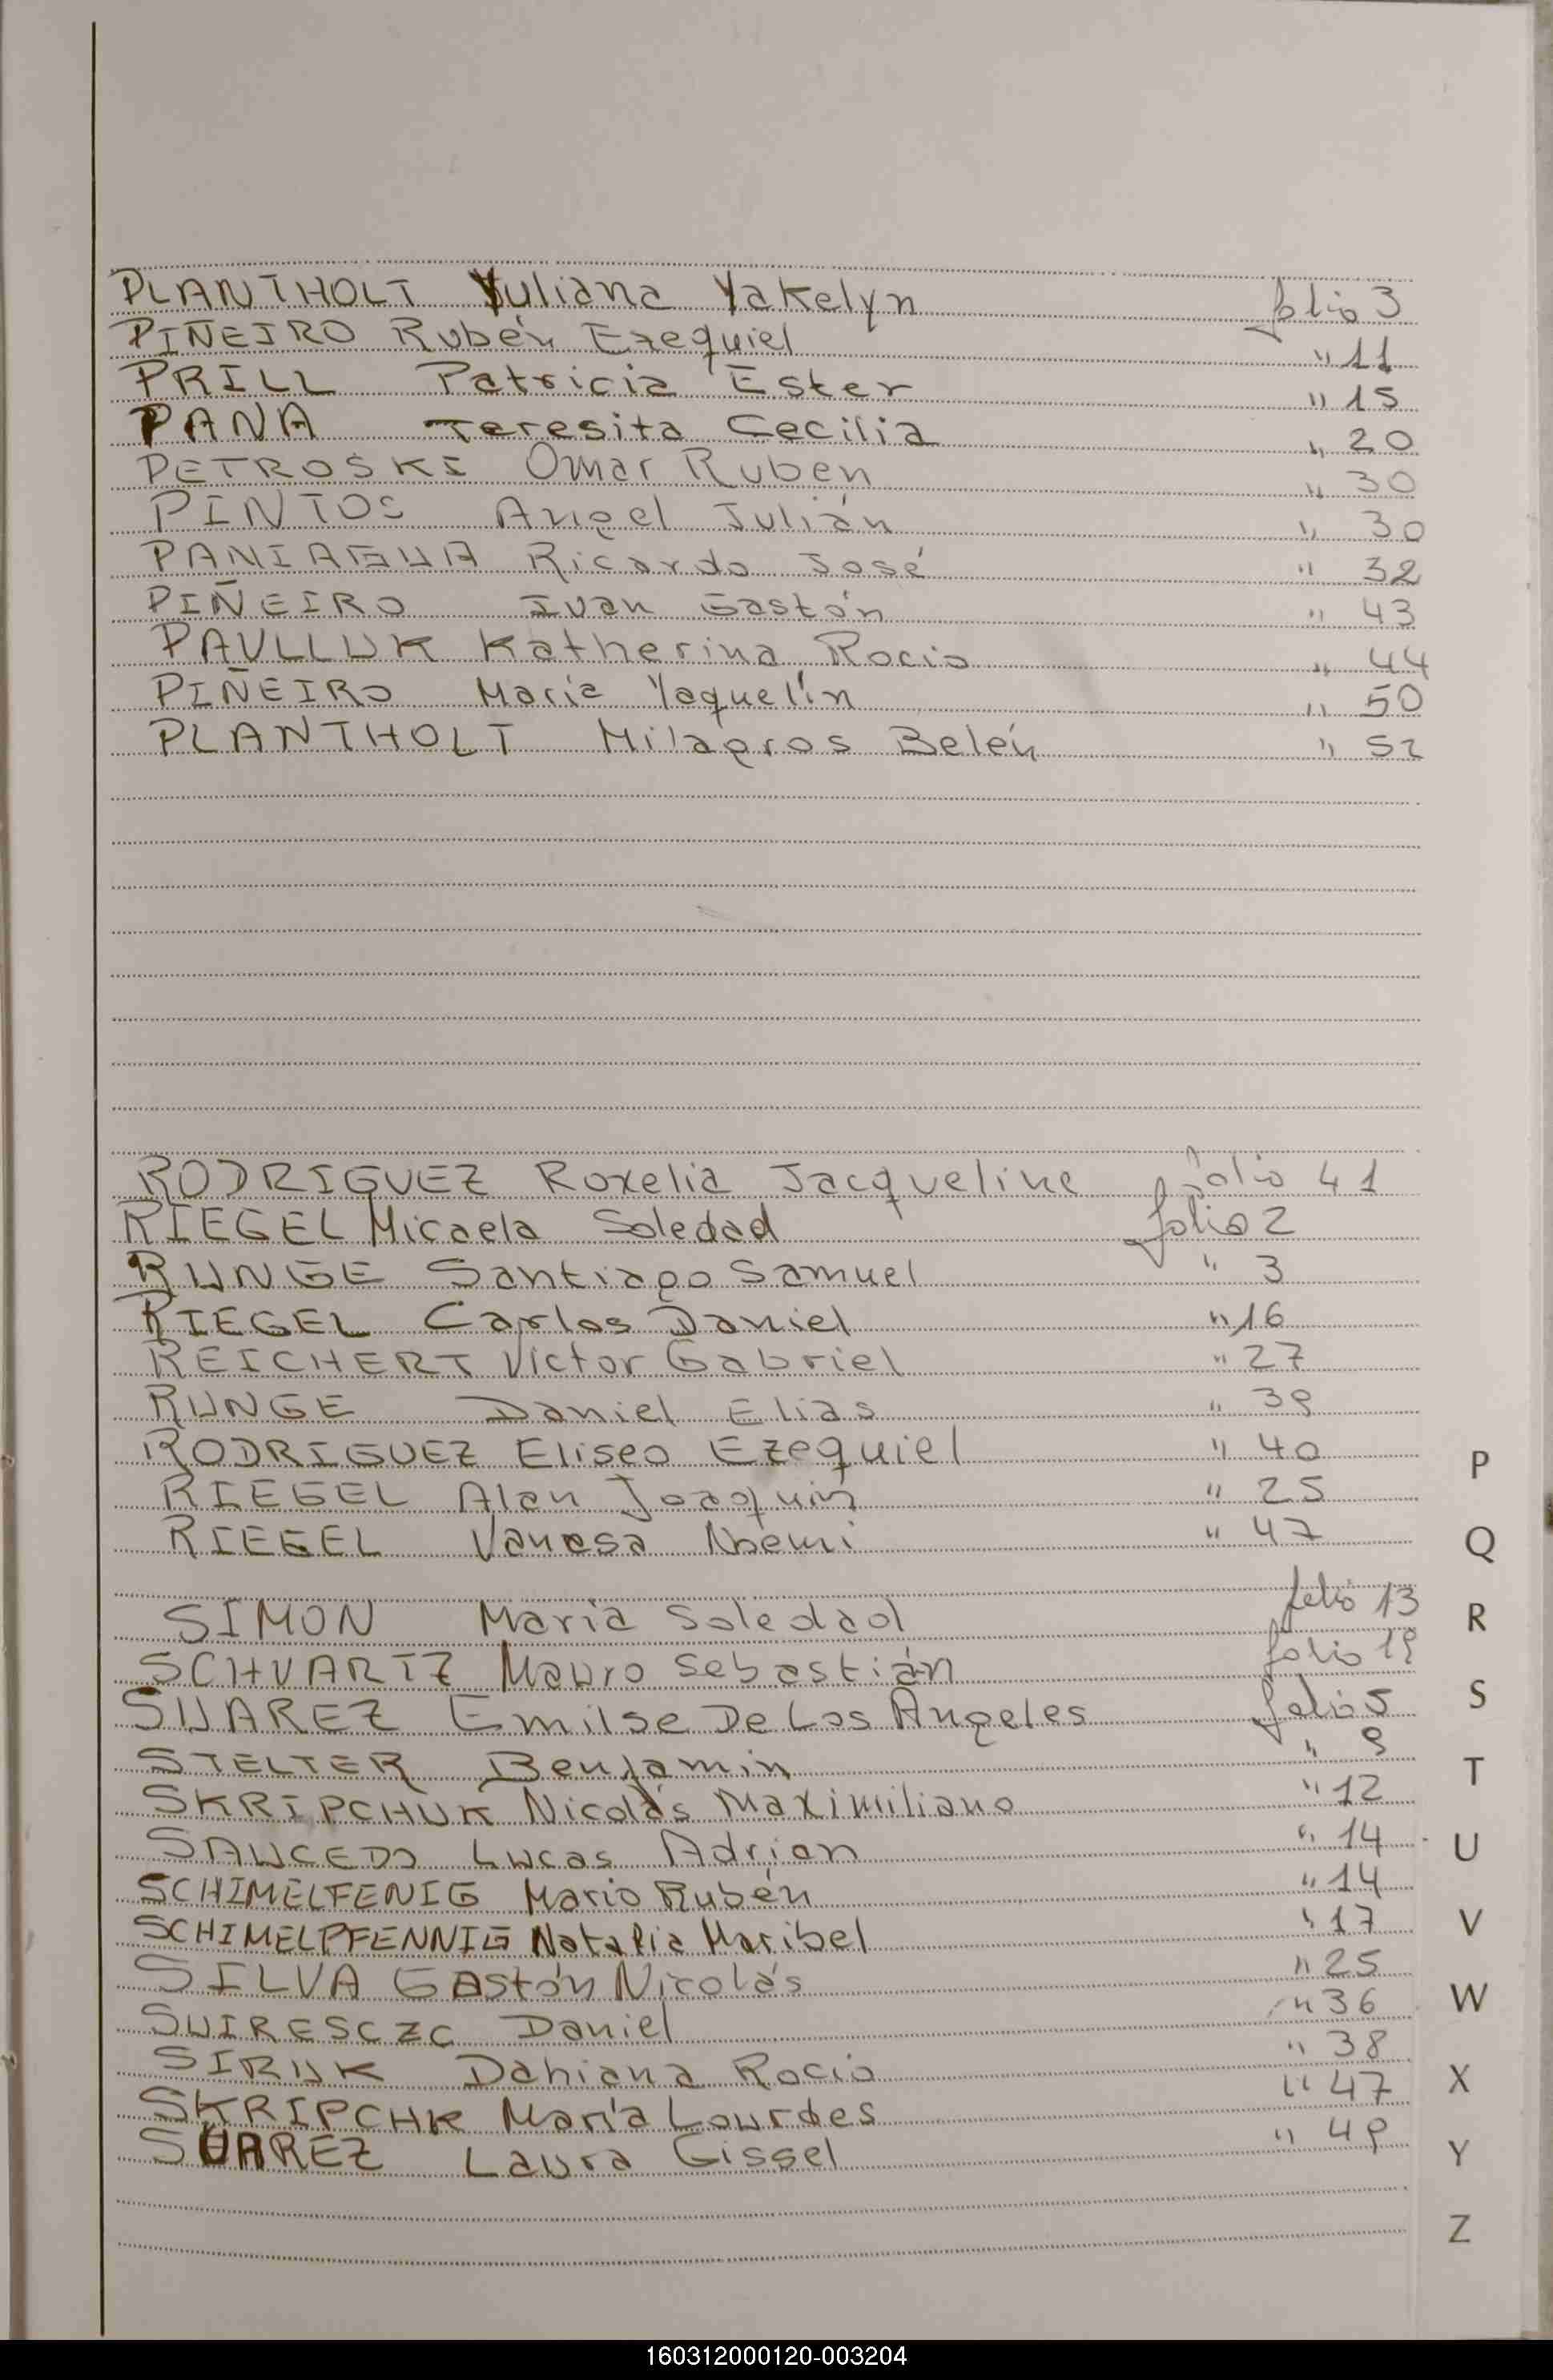 PLANTHOLT Yuliana Yakelyn folio 3
PIÑEIRO Rubén Ezequiel " 11
PRILL Patricia Ester " 15
PANA Teresita Cecilia " 20
PETROSKI Omar Ruben " 30
PINTOS Angel Julián " 30
PANIAGUA Ricardo José " 32
PIÑEIRO Ivan Gastón " 43
PAVLLUK Katherina Rocio " 44
PIÑEIRO Maria Yaquelín " 50
PLANTHOLT Milagros Belén " 52
RODRIGUEZ Roxelia Jacqueline folio 41
RIEGEL Micaela Soledad folio 2
RUNGE Santiago Samuel " 3
RIEGEL Carlos Daniel " 16
REICHERT Victor Gabriel " 27
RUNGE Daniel Elias " 39
RODRIGUEZ Eliseo Ezequiel " 40
RIEGEL Alan Joaquin " 25
RIEGEL Vanesa Noemi " 47
P
Q
SIMON Maria Soledad folio 13
R
SCHVARTZ Mauro Sebastián folio 19
SUAREZ Emilse De Los Angeles folio 5
S
STELTER Benjamin " 9
T
SKRIPCHUK Nicolás Maximiliano " 12
SAUCEDO Lucas Adrian " 14
U
SCHIMELFENIG Mario Rubén " 14
SCHIMELPFENNIG Natalia Maribel " 17
V
SILVA Gastón Nicolás " 25
SUIRESCZC Daniel " 36
W
SIRUK Dahiana Rocio " 38
SKRIPCHK María Lourdes " 47
X
SUAREZ Laura Gissel " 49
Y
Z
160312000120-003204